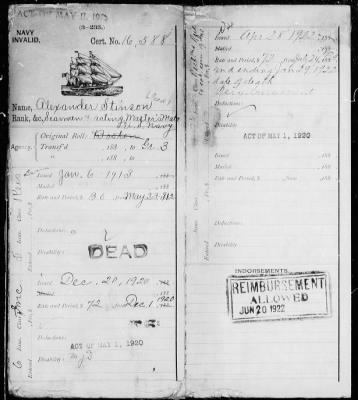 ACT OF MAY 11, 1912
(3-235.)
NAVY
INVALID.
Cert. No. 16,588
Name, Alexander Stinson
Rank, &c., Seaman & acting Master's Mate
U.S. Navy
Original Roll: Boston
Agency. Transf'd , 188 , to Gr 3
, 188 , to
Issued Jan. 6 1913
Mailed
Rate and Period, $ 30 , from May 23, 1912
Deductions:
Disability:
DEAD
Issued Dec. 20, 1920
Mailed
Rate and Period, $ 72 from Dec. 1, 1920
Deductions:
ACT OF MAY 1, 1920
Disability:
Issued Apr 28 1922
Mailed , 188
Rate and Period, $ 72
and ending Jan 29, 1922
date of death
Reimbursement
Deductions:
Disability:
ACT OF MAY 1, 1920
Issued , 188
Mailed , 188
Rate and Period, $ , from , 188
Deductions:
Disability:
Issued , 188
Mailed , 188
Rate and Period, $ , from , 188
INDORSEMENTS.
REIMBURSEMENT
ALLOWED
JUN 20 1922